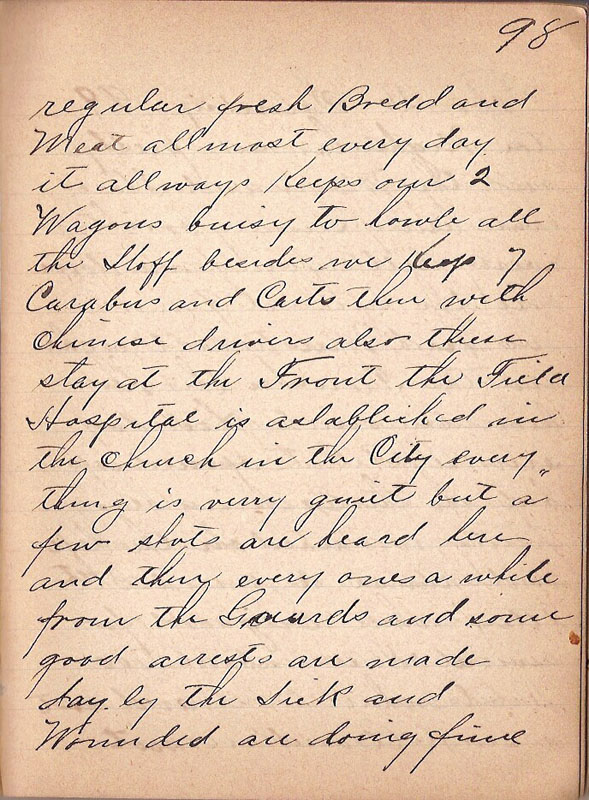 98
regular fresh Bredd and
Meat allmost every day.
it allways Keeps our 2
Wagons buisy to howle all
the Stoff besides we Keep 7
Carabus and Carts then with
chinese drivers also these
stay at the Front the Field
Hospital is astablished in
the church in the City every"
thing is verry quiet but a
few shots are heard here
and then every ones a while
from the Gaurds and some
good arrests are made
day by the Sick and
Wounded are doing fine